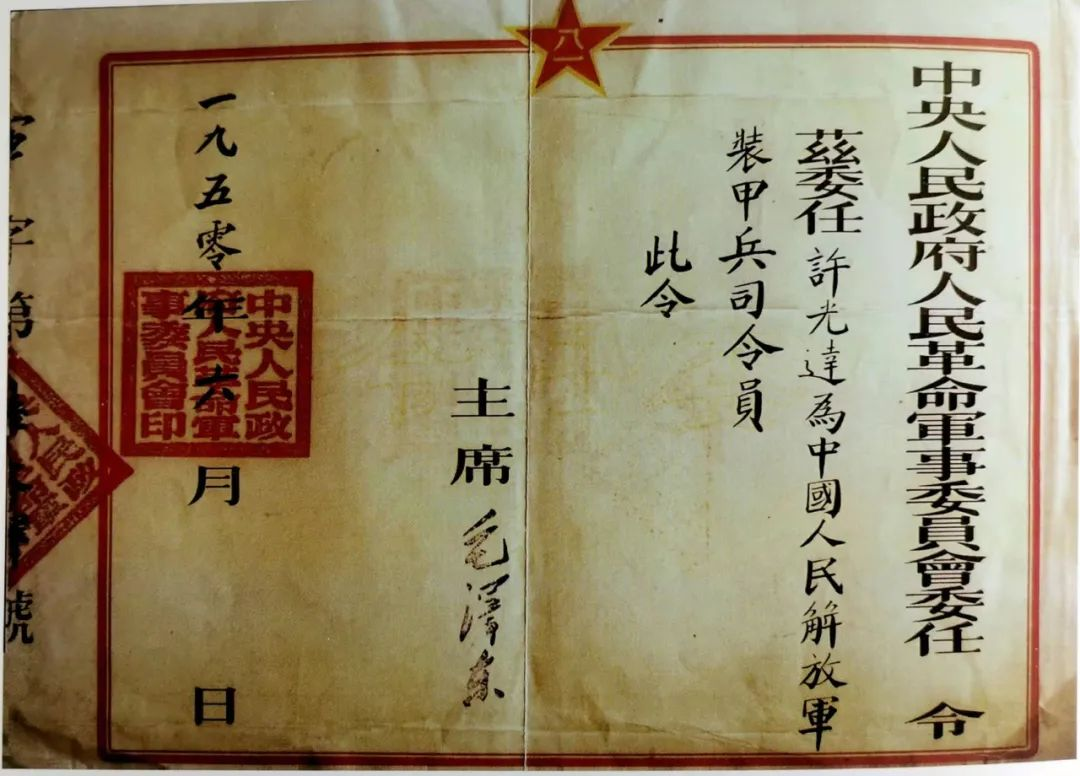 八一
中央人民政府人民革命軍事委員會委任令
茲委任許光達為中國人民解放軍
裝甲兵司令員
此令
主席毛澤東
一九五零年六月日
中央人民政
府人民革命軍
事委員會印
字第
號